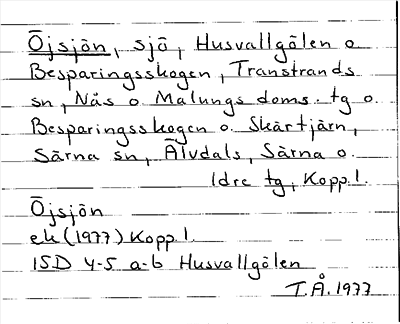 Öjsjön, sjö, Husvallgölen o.
Besparingsskogen, Transtrands
sn, Nås o. Malungs doms. tg o.
Besparingsskogen o. Skärtjärn,
Särna sn, Älvdals, Särna o.
Idre tg, Kopp.l.
Öjsjön
ek (1977) Kopp.l.
15D 4-5 a-b Husvallgölen
T.Å. 1977